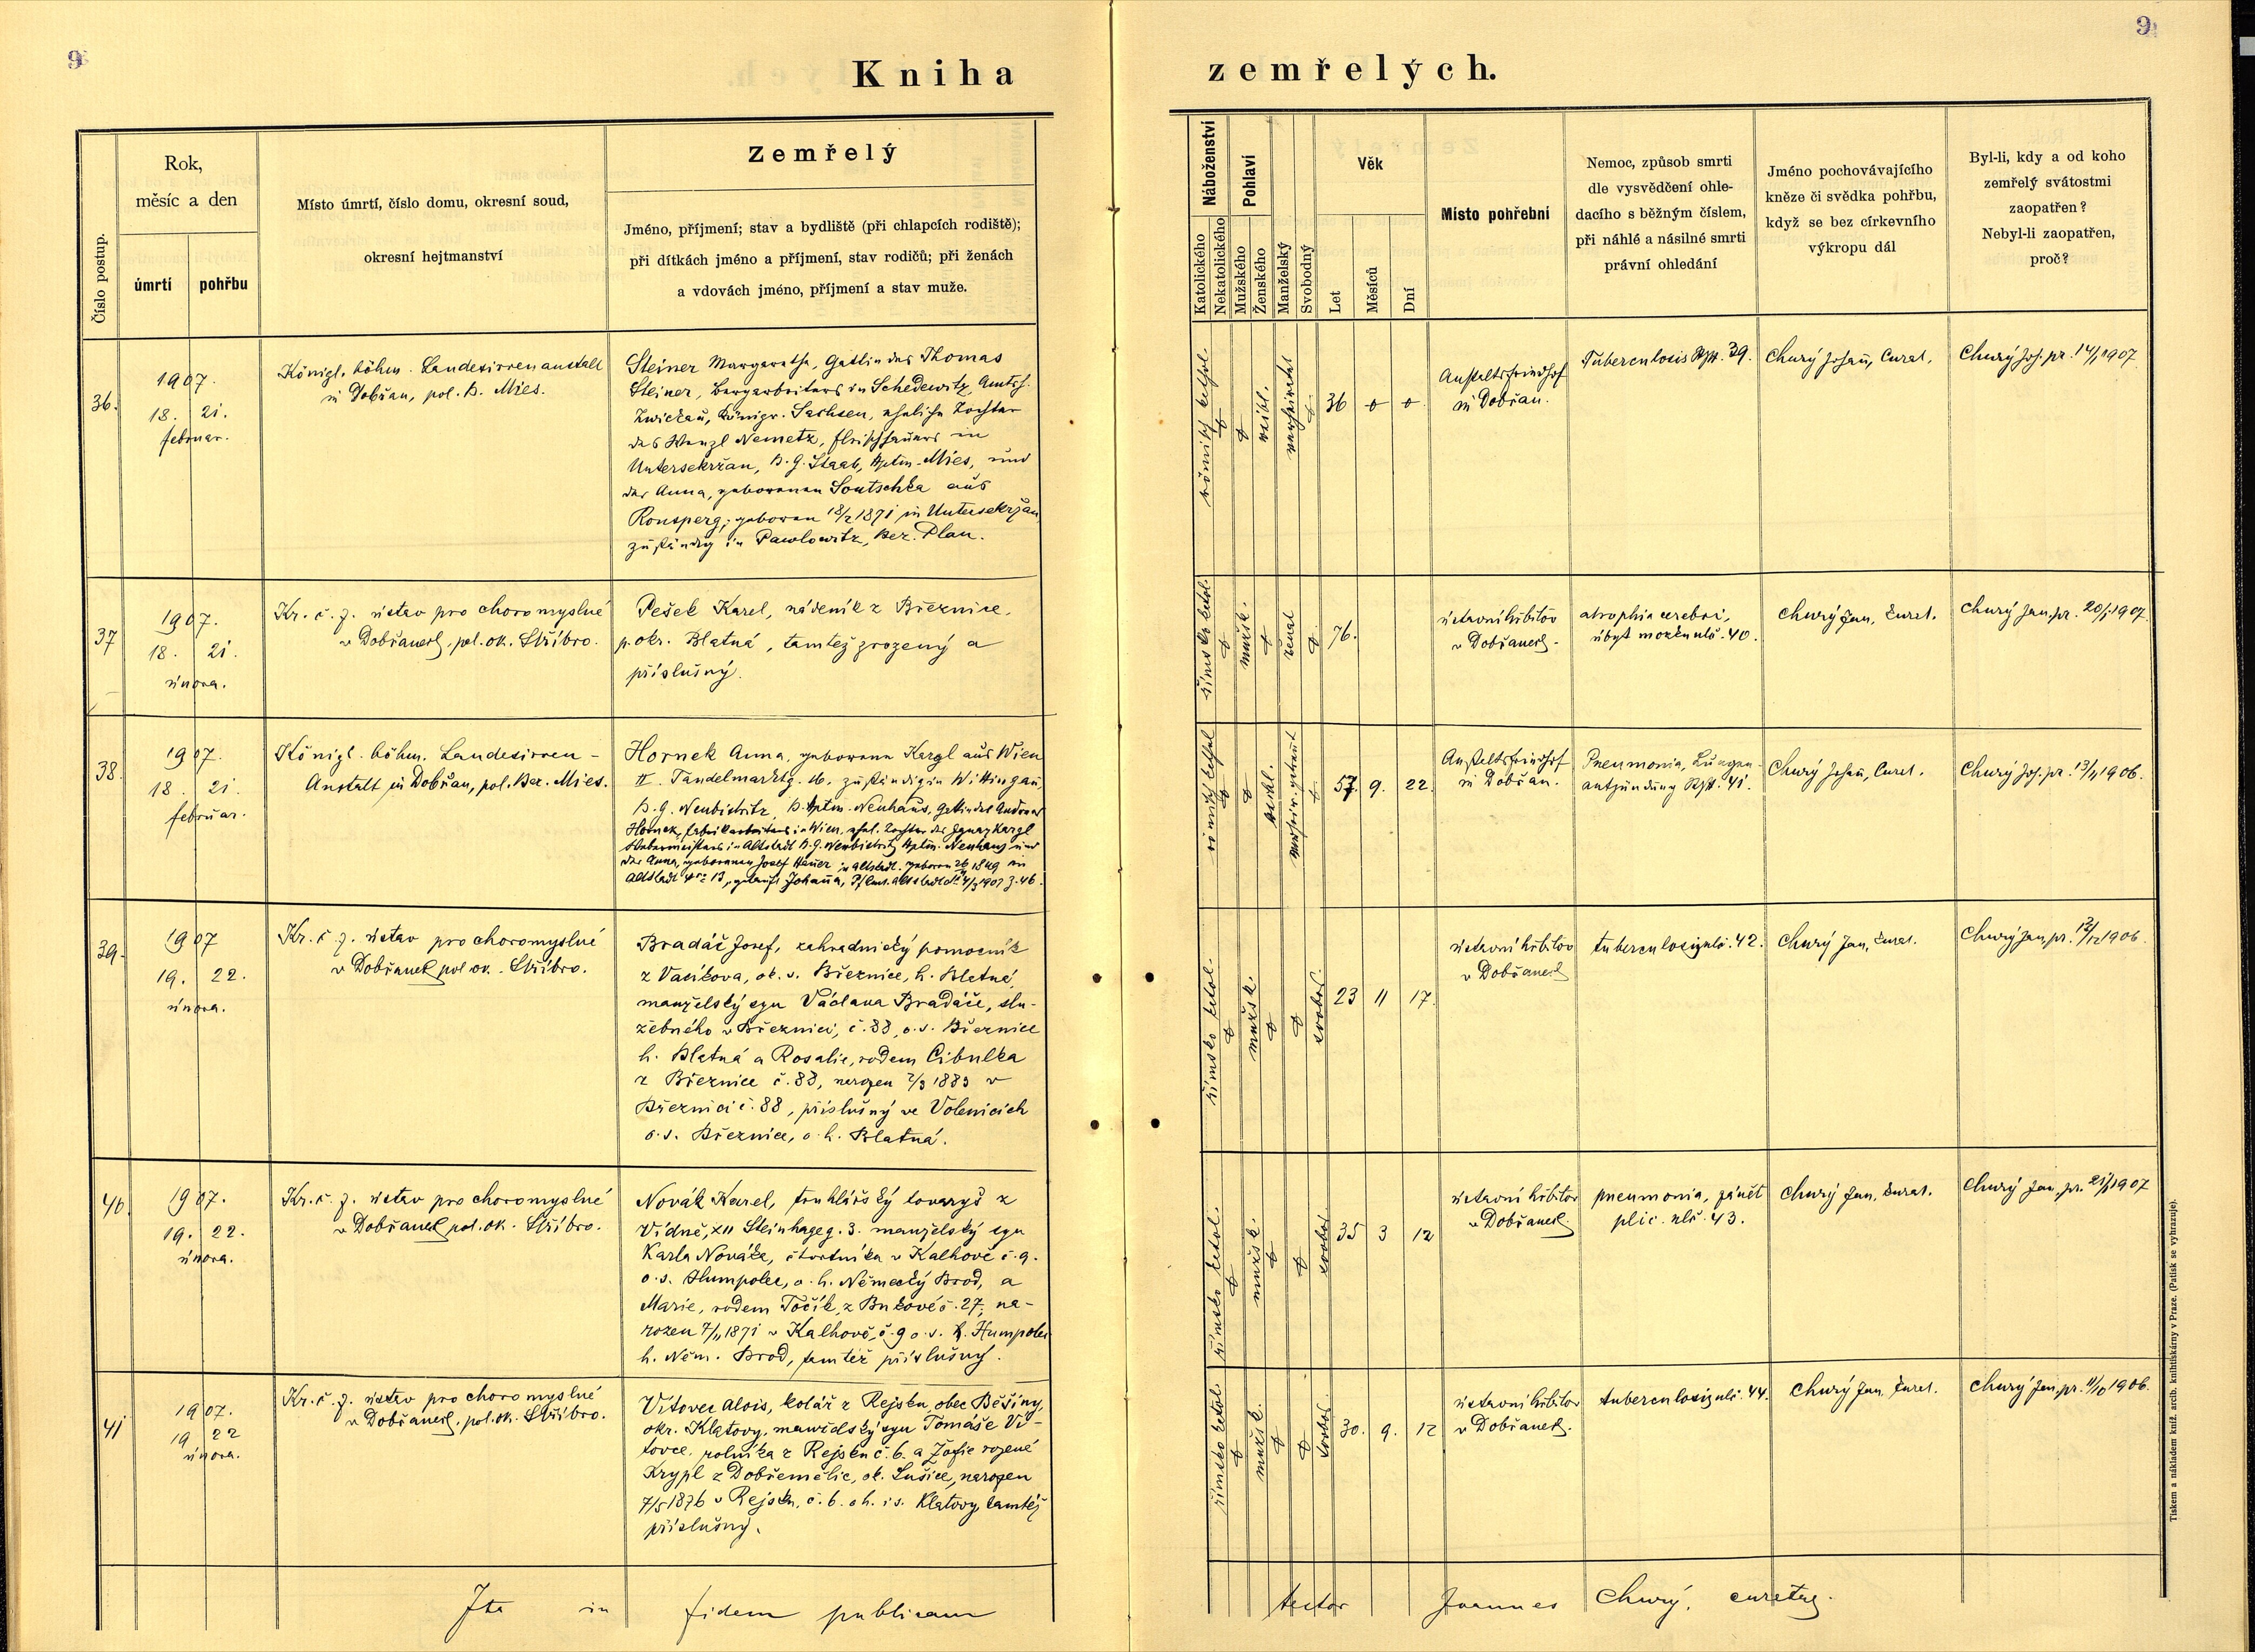 9
9
Kniha zemřelých.
Číslo postup.
Rok,
měsíc a den
úmrtí
pohřbu
Místo úmrtí, číslo domu, okresní soud,
okresní hejtmanství
Zemřelý
Jméno, příjmení; stav a bydliště (při chlapcích rodiště);
při dítkách jméno a příjmení, stav rodičů; při ženách
a vdovách jméno, příjmení a stav muže.
Náboženství
Katolického
Nekatolického
Pohlaví
Mužského
Ženského
Manželský
Svobodný
Věk
Let
Měsíců
Dní
Místo pohřební
Nemoc, způsob smrti
dle vysvědčení ohle-
dacího s běžným číslem,
při náhlé a násilné smrti
právní ohledání
Jméno pochovávajícího
kněze či svědka pohřbu,
když se bez církevního
výkropu dál
Byl-li, kdy a od koho
zemřelý svátostmi
zaopatřen?
Nebyl-li zaopatřen,
proč?
36.
1907.
18. 21.
februar.
Königl. böhm. Landesirrenanstalt
in Dobřan, pol. B. Mies.
Steiner Margaretha, Gattin des Thomas
Steiner, Bergarbeiters in Schedewitz, Amtsh.
Zwickau, Königr. Sachsen, ehelihe Tochter
des Wenzl Nemetz, Fleischhauers in
Untersekržan, B. G. Staab, Hptm. Mies, und
der Anna, geborenen Soutschka aus
Ronsperg; geboren 18/2 1871 in Untersekržan,
zuständig in Pawlowitz, Bez. Plan.
römisch kathol.
weibl.
verheiratet
36 0 0
Anstaltsfriedhof
in Dobřan.
Tuberculosis 39.
Chwrý Johan, Curat.
Chwrý Joh. pr. 14/1 1907
37
1907.
18. 21.
února.
Kr. č. z. ústav pro choromyslné
v Dobřanech, pol. ok. Stříbro.
Pešek Karel, nádeník z Březnice,
p. okr. Blatná, tamtéž zrozený a
příslušný.
římsko katol.
mužsk.
ženat
76.
ústavní hřbitov
v Dobřanech.
atrophia cerebri,
úbyť mozku nlč. 40.
Chwrý Jan, kurat.
Chwrý Jan, pr. 20/1 1907
38.
1907.
18. 21.
februar.
Königl. böhm. Landesirren-
Anstalt in Dobřan, pol. Bez. Mies.
Hornek Anna, geborene Kargl aus Wien
II. Tandelmarktg. 16. zuständig in Wittingau,
B. G. Neubistritz, B. Hptm. Neuhaus, Gattin des Andreas
Hornek, Fabrikarbeiters in Wien, ehel. Tochter des Ignaz Kargl
Webermeisters in Altstadt B. G. Neubistritz Hptm. Neuhaus und
der Anna, geborenen Josef Hauer in Altstadt. geboren 26 1849 in
Altstadt Nro 13, getauft Johanna, Pfarr. Altstadt 4/3 1907 Z. 46.
römisch kathol
weibl.
57 9. 22.
Anstaltsfriedhof
in Dobřan.
Pneumonia, Lungen-
entzündung 41.
Chwrý Johan, Curat.
Chwrý Joh. pr. 13/11 1906.
39.
1907
19. 22.
února.
Kr. č. z. ústav pro choromyslné
v Dobřanech pol. ok. Stříbro.
Bradáč Josef, zahradnický pomocník
z Vacíkova, ok. s. Březnice, h. Blatná,
manželský syn Václava Bradáče, slu-
žebného v Březnici, č. 88, o. s. Březnice
h. Blatná a Rosalie, rodem Cibulka
z Březnice č. 88, narozen 2/3 1883 v
Březnici č. 88, příslušný ve Volenicích
o. s. Březnice, o. h. Blatná.
římsko katol.
mužsk.
svobod.
23 11 17.
ústavní hřbitov
v Dobřanech
tuberculosis nlč. 42.
Chwrý Jan, kurat.
Chwrý Jan, pr. 12/12 1906
40.
1907.
19. 22.
února.
Kr. č. z. ústav pro choromyslné
v Dobřanech pol. ok. Stříbro.
Novák Karel, truhlářský tovaryš z
Vídně, XII Steinhageg. 3. manželský syn
Karla Nováka, čtvrtníka v Kalhově č. 9.
o. s. Humpolec, o. h. Německý Brod, a
Marie, rodem Točík, z Bukové č. 27, na-
rozen 7/11 1871 v Kalhově, č. 9 o. s. Humpolec
h. Něm. Brod, tamtéž příslušný.
římsko katol.
mužsk.
svobod
35 3 12
ústavní hřbitov
v Dobřanech.
pneumonia, zánět
plic. nlč. 43.
Chwrý Jan, kurat.
Chwrý Jan, pr. 21/1 1907
41
1907.
19 22
února.
Kr. č. z. ústav pro choromyslné
v Dobřanech, pol. ok. Stříbro.
Vítovec Alois, kolář z Rejsku, obec Běšiny,
okr. Klatovy, manželský syn Tomáše Ví-
tovce, rolníka z Rejsku č. 6. a Žofie rozené
Krypl z Dobřemělic, ok. Sušice, narozen
7/5 1876 v Rejsku, č. 6. o h. i s. Klatovy, tamtéž
příslušný.
římsko katol.
mužsk.
svobod.
30. 9. 12
ústavní hřbitov
v Dobřanech.
tuberculosis nlč. 44.
Chwrý Jan, kurat.
Chwrý Jan, pr. 11/10 1906.
Ita in fidem publicam
testor Joannes Chwrý, curatus.
Tiskem a nákladem kníž. arcib. knihtiskárny v Praze. (Patisk se vyhrazuje).